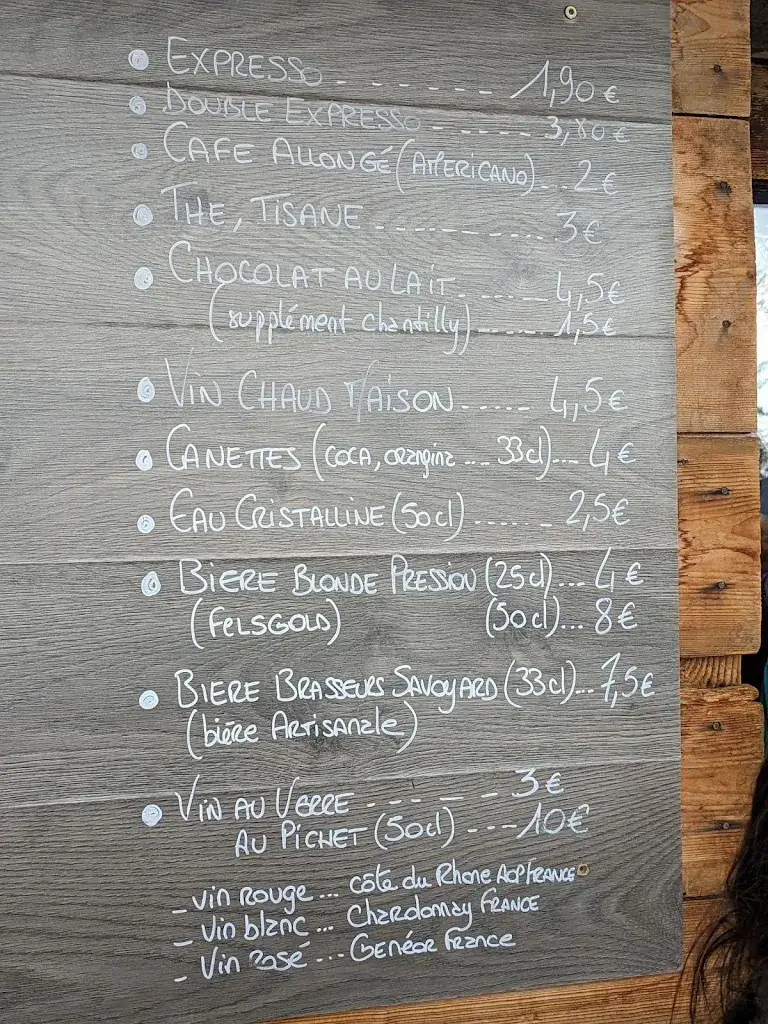 EXPRESSO ------ 1,90€
DOUBLE EXPRESSO ------ 3,80€
CAFE ALLONGÉ (AMERICANO)...2€
THE, TISANE ---------- 3€
CHOCOLAT AU LAIT ------ 4,5€
(supplément chantilly) ----- 1,5€
VIN CHAUD MAISON ----- 4,5€
CANETTES (COCA, orangina ... 33cl)... 4€
EAU CRISTALLINE (50cl) ------ 2,5€
BIERE BLONDE PRESSION (25cl)... 4€
(FELSGOLD) (50cl)... 8€
BIERE BRASSEURS SAVOYARD (33cl)... 7,5€
(bière ARTISANale)
VIN AU VERRE ------ 3€
AU PICHET (50cl) ---- 10€
- vin rouge ... côte du Rhone AOP FRANCE
- Vin blanc ... Chardonnay FRANCE
- Vin rosé ... Genéor France